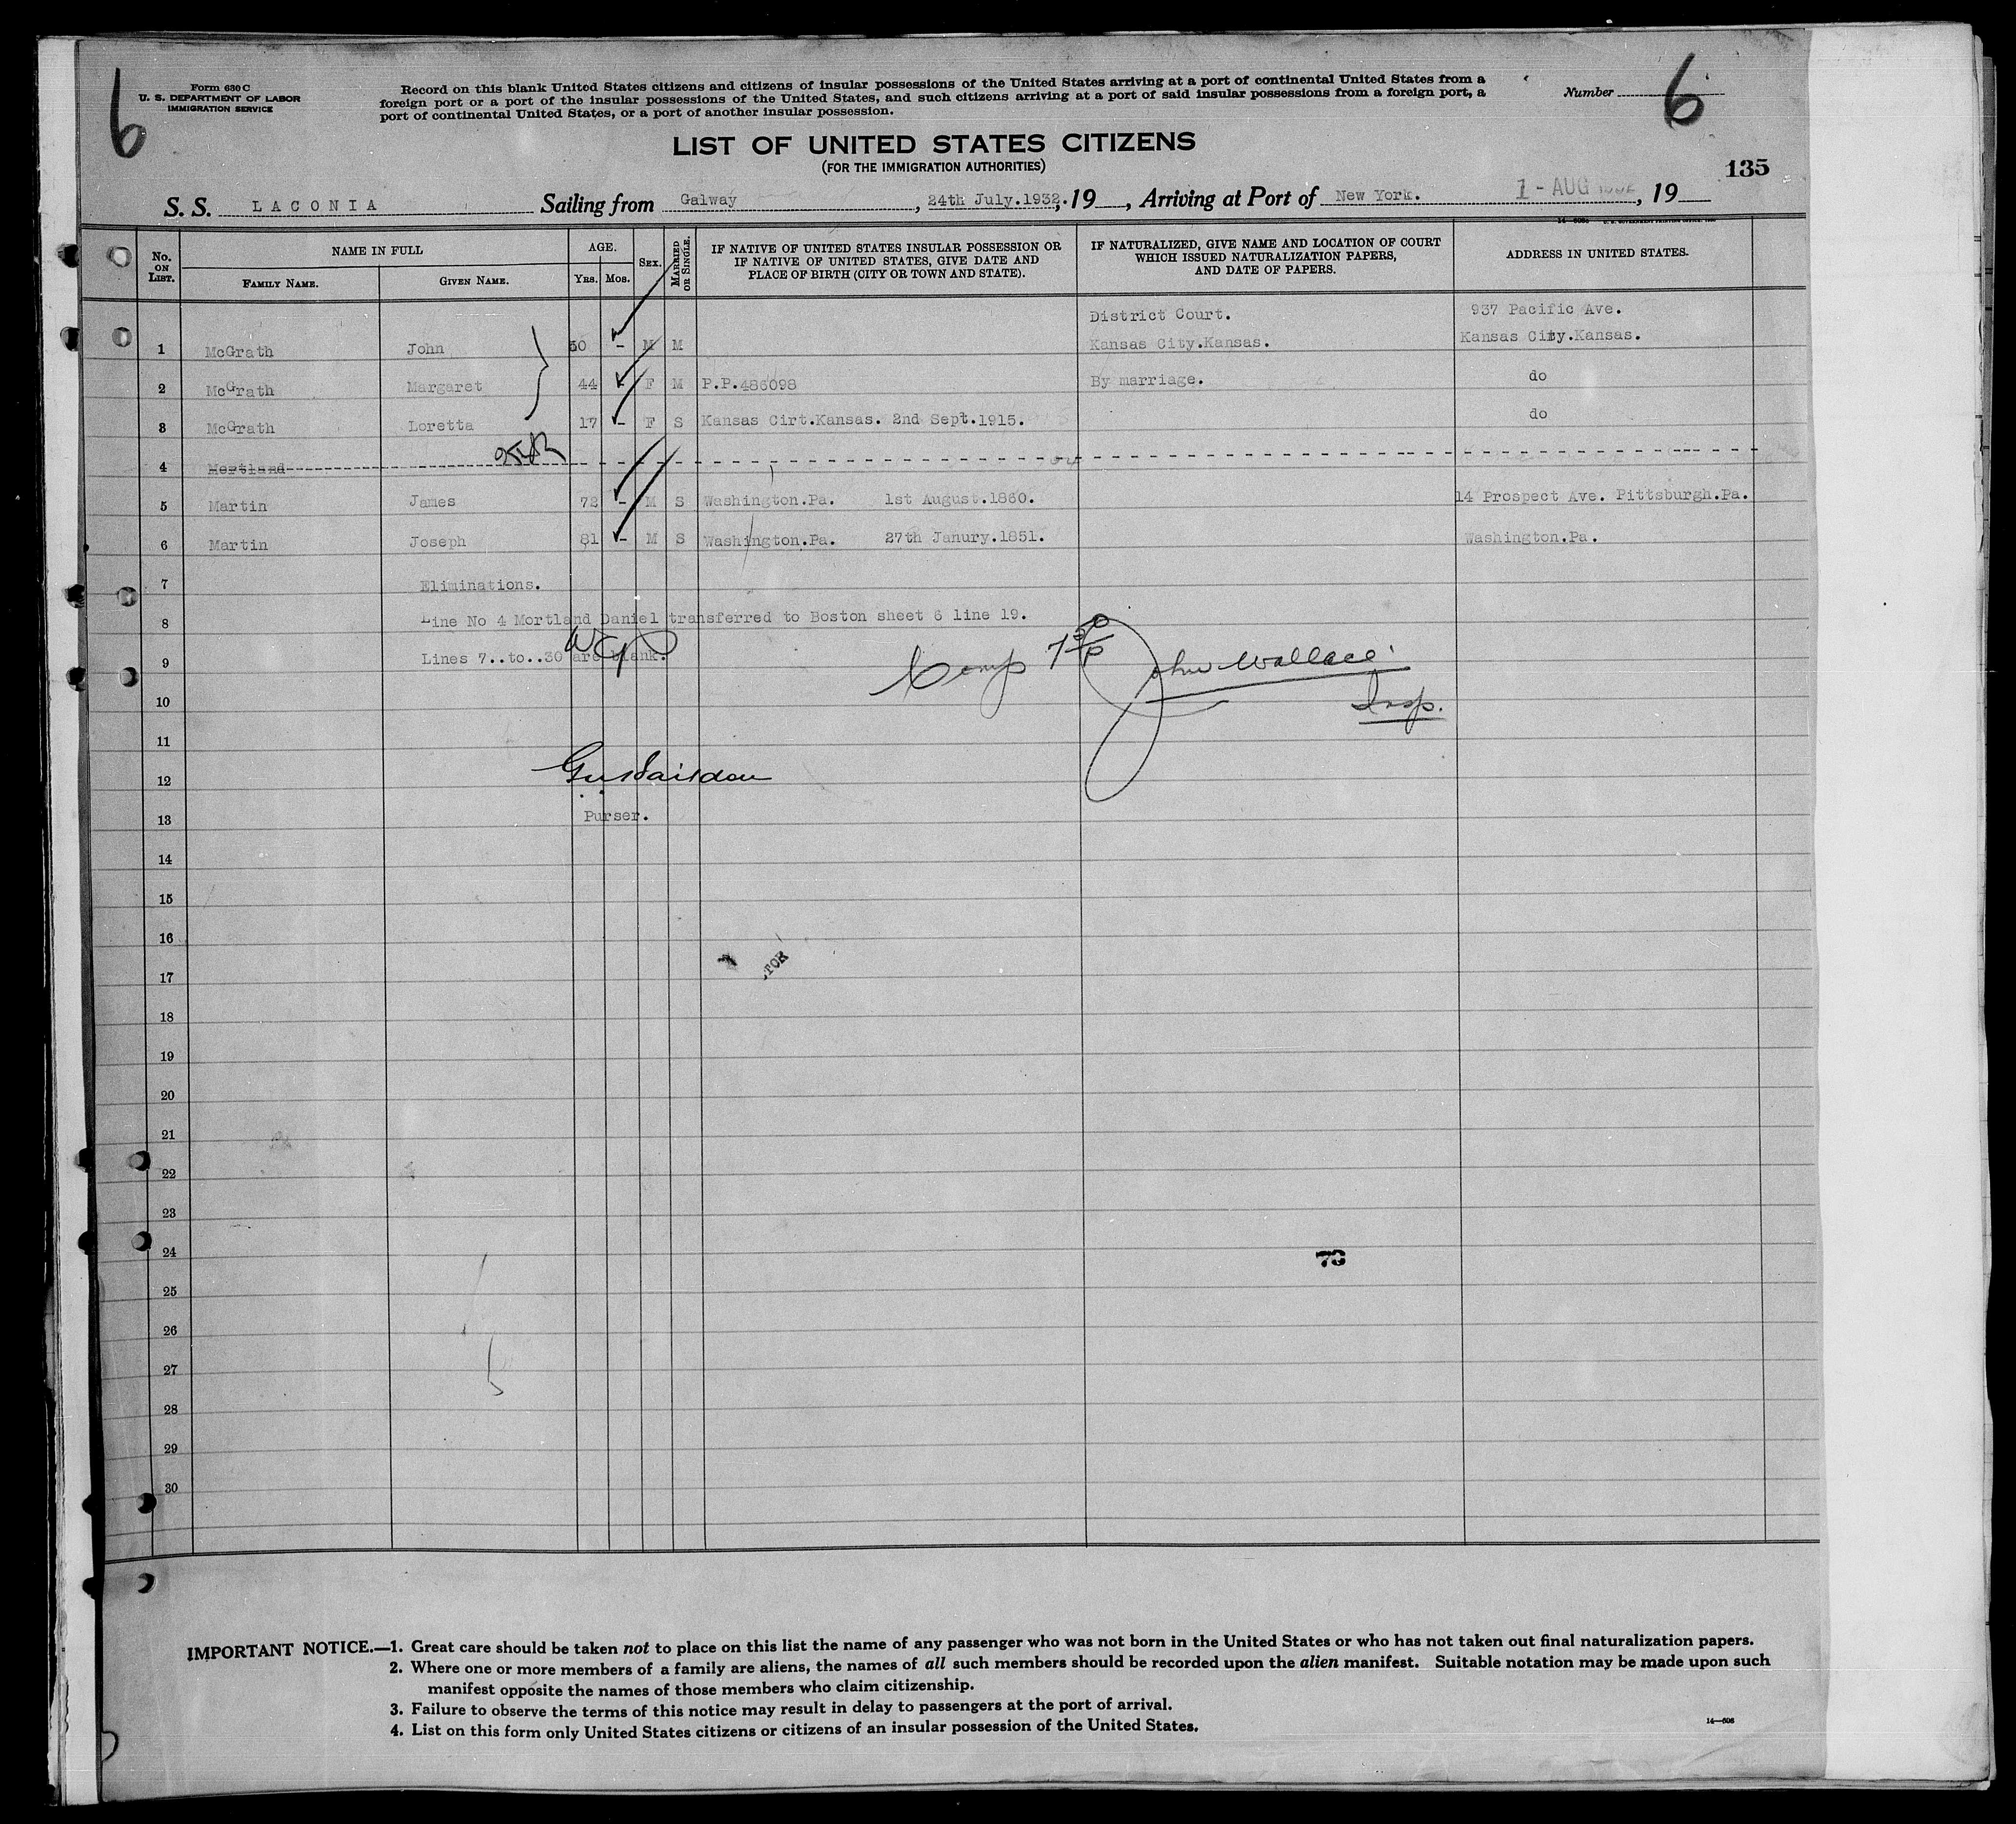 6
Form 630 C
U. S. DEPARTMENT OF LABOR
IMMIGRATION SERVICE
Record on this blank United States citizens and citizens of insular possessions of the United States arriving at a port of continental United States from a
foreign port or a port of the insular possessions of the United States, and such citizens arriving at a port of said insular possessions from a foreign port, a
port of continental United States, or a port of another insular possession.
Number 6
LIST OF UNITED STATES CITIZENS
(FOR THE IMMIGRATION AUTHORITIES)
135
S. S. LACONIA Sailing from Galway, 24th July.1932., 19, Arriving at Port of New York. 1 - AUG 1932, 19
No. ON LIST.
NAME IN FULL
FAMILY NAME. GIVEN NAME.
AGE.
YRS. MOS.
SEX.
MARRIED OR SINGLE.
IF NATIVE OF UNITED STATES INSULAR POSSESSION OR
IF NATIVE OF UNITED STATES, GIVE DATE AND
PLACE OF BIRTH (CITY OR TOWN AND STATE).
IF NATURALIZED, GIVE NAME AND LOCATION OF COURT
WHICH ISSUED NATURALIZATION PAPERS,
AND DATE OF PAPERS.
ADDRESS IN UNITED STATES.
District Court. 937 Pacific Ave.
1 McGrath John 50 - M M Kansas City.Kansas. Kansas City.Kansas.
2 McGrath Margaret 44 - F M P.P.486098 By marriage. do
3 McGrath Loretta 17 - F S Kansas Cirt.Kansas. 2nd Sept.1915. do
4 Mortland
5 Martin James 72 - M S Washington.Pa. 1st August.1860. 14 Prospect Ave. Pittsburgh.Pa.
6 Martin Joseph 81 - M S Washington.Pa. 27th Janury.1851. Washington.Pa.
7 Eliminations.
8 Line No 4 Mortland Daniel transferred to Boston sheet 6 line 19.
9 Lines 7..to..30 are blank.
Comp 7 30/P John Wallace
Insp.
10
11
12
13 Purser.
14
15
16
17
18
19
20
21
22
23
24 73
25
26
27
28
29
30
IMPORTANT NOTICE.—1. Great care should be taken not to place on this list the name of any passenger who was not born in the United States or who has not taken out final naturalization papers.
2. Where one or more members of a family are aliens, the names of all such members should be recorded upon the alien manifest. Suitable notation may be made upon such
manifest opposite the names of those members who claim citizenship.
3. Failure to observe the terms of this notice may result in delay to passengers at the port of arrival.
4. List on this form only United States citizens or citizens of an insular possession of the United States.
14—606